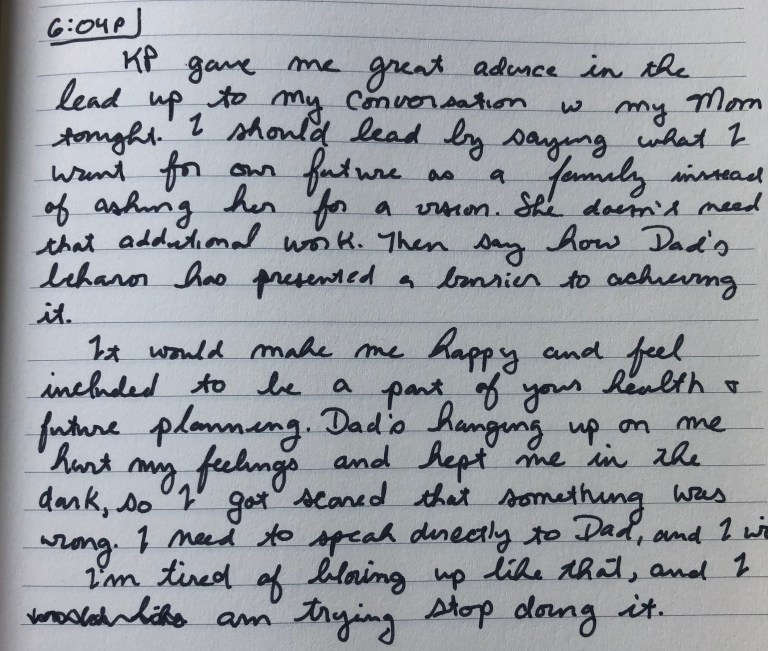 6:04P
KP gave me great advice in the
lead up to my conversation w my Mom
tonight. I should lead by saying what I
want for our future as a family instead
of asking her for a vision. She doesn't need
that additional work. Then say how Dad's
behavior has presented a barrier to achieving
it.
It would make me happy and feel
included to be a part of your health &
future planning. Dad's hanging up on me
hurt my feelings and kept me in the
dark, so I got scared that something was
wrong. I need to speak directly to Dad, and I
I'm tired of blowing up like that, and I
am trying stop doing it.